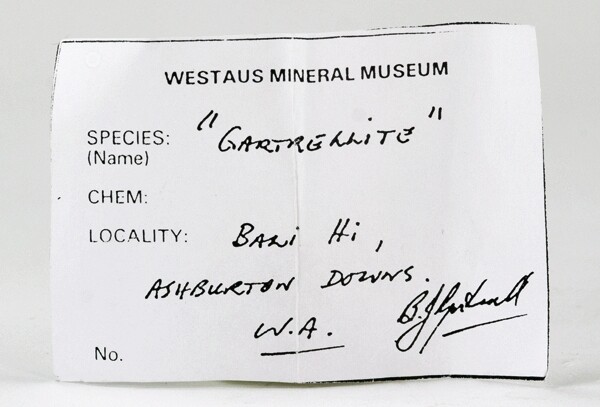 WESTAUS MINERAL MUSEUM
SPECIES: "GARTRELLITE"
(Name)
CHEM:
LOCALITY: BALI HI,
ASHBURTON DOWNS.
W.A. B.J. Gartrell
No.